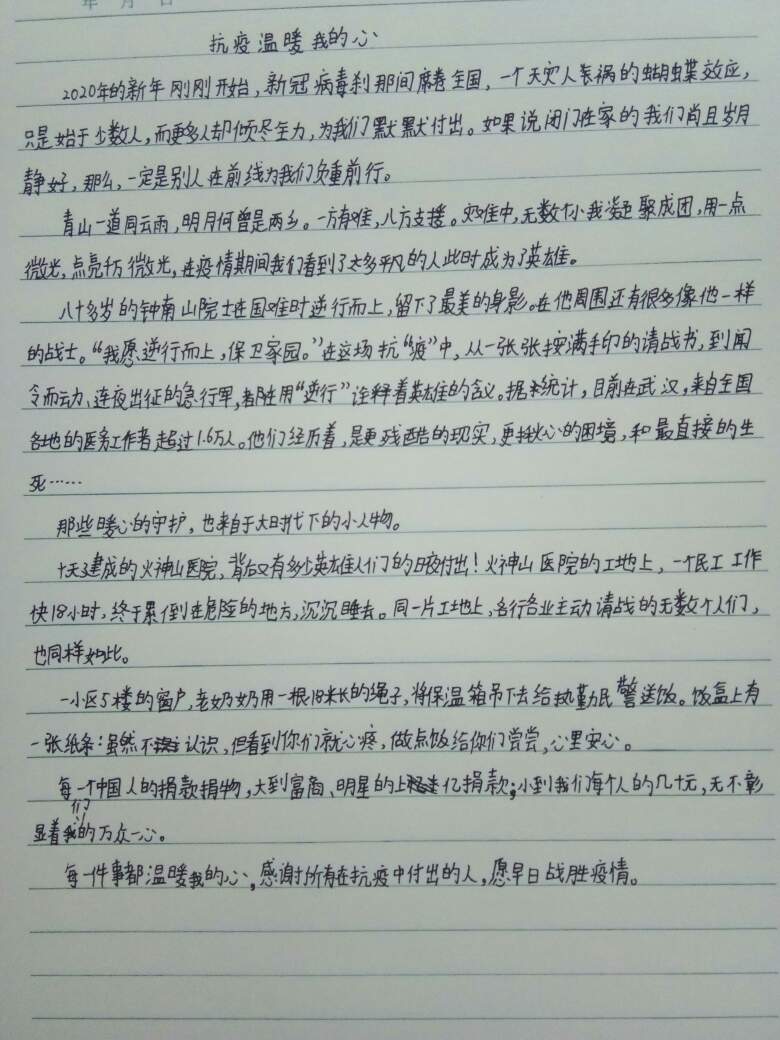 年 月 日
抗疫温暖我的心
2020年的新年刚刚开始，新冠病毒刹那间席卷全国，一个天灾人祸的蝴蝶效应，
只是始于少数人，而更多人却倾尽全力，为我们默默付出。如果说闭门在家的我们尚且岁月
静好，那么，一定是别人在前线为我们负重前行。
青山一道同云雨，明月何曾是两乡。一方有难，八方支援。灾难中，无数个小我凝聚成团，用一点
微光，点亮千万微光，在疫情期间我们看到了太多平凡的人此时成为了英雄。
八十多岁的钟南山院士在国难时逆行而上，留下了最美的身影。在他周围还有很多像他一样
的战士。“我愿逆行而上，保卫家园。”在这场抗“疫”中，从一张张按满手印的请战书，到闻
令而动、连夜出征的急行军，都在用“逆行”诠释着英雄的含义。据统计，目前在武汉，来自全国
各地的医务工作者，超过1.6万人。他们经历着，是更残酷的现实，更揪心的困境，和最直接的生
死……
那些暖心的守护，也来自于大时代下的小人物。
十天建成的火神山医院，背后又有多少英雄人们的日夜付出！火神山医院的工地上，一个民工工作
快18小时，终于累倒在危险的地方，沉沉睡去。同一片工地上，各行各业主动请战的无数个人们，
也同样如此。
一小区5楼的窗户，老奶奶用一根18米长的绳子，将保温箱吊下去给执勤民警送饭。饭盒上有
一张纸条：虽然不认识，但看到你们就心疼，做点饭给你们尝尝，心里安心。
每一个中国人的捐款捐物，大到富商、明星的上亿捐款；小到我们每个人的几十元，无不彰
显着我们的万众一心。
每一件事都温暖我的心，感谢所有在抗疫中付出的人，愿早日战胜疫情。